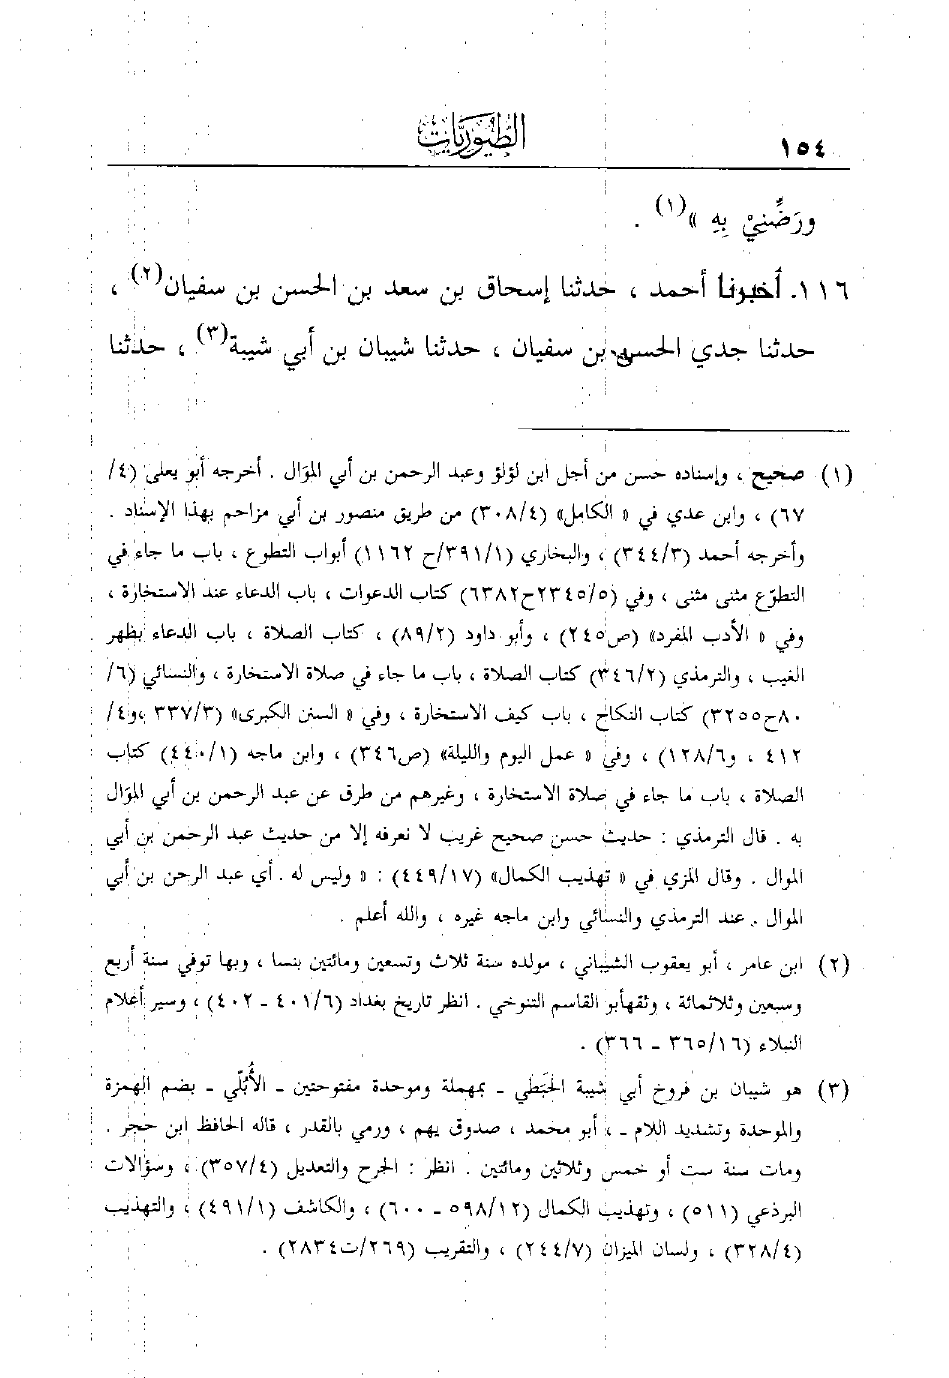 ١٥٤
الطيوريات
ورَضِّنِيْ بِهِ »(١) .
١١٦. أخبرنا أحمد ، حدثنا إسحاق بن سعد بن الحسن بن سفيان(٢) ،
حدثنا جدي الحسن بن سفيان ، حدثنا شيبان بن أبي شيبة(٣) ، حدثنا
(١) صحيح ، وإسناده حسن من أجل ابن لؤلؤ وعبد الرحمن بن أبي الموَال . أخرجه أبو يعلى (٤/
٦٧) ، وابن عدي في « الكامل» (٣٠٨/٤) من طريق منصور بن أبي مزاحم بهذا الإسناد .
وأخرجه أحمد (٣٤٤/٣) ، والبخاري (٣٩١/١/ح ١١٦٢) أبواب التطوع ، باب ما جاء في
التطوّع مثنى مثنى ، وفي (٢٣٤٥/٥ح٦٣٨٢) كتاب الدعوات ، باب الدعاء عند الاستخارة ،
وفي « الأدب المفرد» (ص٢٤٥) ، وأبو داود (٨٩/٢) ، كتاب الصلاة ، باب الدعاء بظهر
الغيب ، والترمذي (٣٤٦/٢) كتاب الصلاة ، باب ما جاء في صلاة الاستخارة ، والنسائي (٦/
٨٠ح٣٢٥٥) كتاب النكاح ، باب كيف الاستخارة ، وفي « السنن الكبرى» (٣٣٧/٣ ،و٤/
٤١٢ ، و١٢٨/٦) ، وفي « عمل اليوم والليلة» (ص٣٤٦) ، وابن ماجه (٤٤٠/١) كتاب
الصلاة ، باب ما جاء في صلاة الاستخارة ، وغيرهم من طرق عن عبد الرحمن بن أبي الموَال
به . قال الترمذي : حديث حسن صحيح غريب لا نعرفه إلا من حديث عبد الرحمن بن أبي
الموال . وقال المزي في « تهذيب الكمال» (٤٤٩/١٧) : « وليس له . أي عبد الرحمن بن أبي
الموال . عند الترمذي والنسائي وابن ماجه غيره ، والله أعلم .
(٢) ابن عامر ، أبو يعقوب الشيباني ، مولده سنة ثلاث وتسعين ومائتين بنسا ، وبها توفي سنة أربع
وسبعين وثلاثمائة ، وثقهأبو القاسم التنوخي . انظر تاريخ بغداد (٤٠١/٦ ـ ٤٠٢) ، وسير أعلام
النبلاء (٣٦٥/١٦ ـ ٣٦٦) .
(٣) هو شيبان بن فروخ أبي شيبة الحَبَطي ـ بمهملة وموحدة مفتوحتين ـ الأُبُلّي ـ بضم الهمزة
والموحدة وتشديد اللام ـ ، أبو محمد ، صدوق يهم ، ورمي بالقدر ، قاله الحافظ ابن حجر .
ومات سنة ست أو خمس وثلاثين ومائتين . انظر : الجرح والتعديل (٣٥٧/٤) ، وسؤالات
البرذعي (٥١١) ، وتهذيب الكمال (٥٩٨/١٢ ـ ٦٠٠) ، والكاشف (٤٩١/١) ، والتهذيب
(٣٢٨/٤) ، ولسان الميزان (٢٤٤/٧) ، والتقريب (٢٦٩/ت٢٨٣٤) .